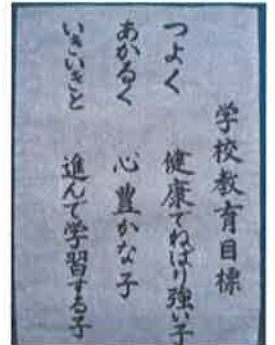 学校教育目標
つよく 健康でねばり強い子
あかるく 心豊かな子
いきいきと 進んで学習する子